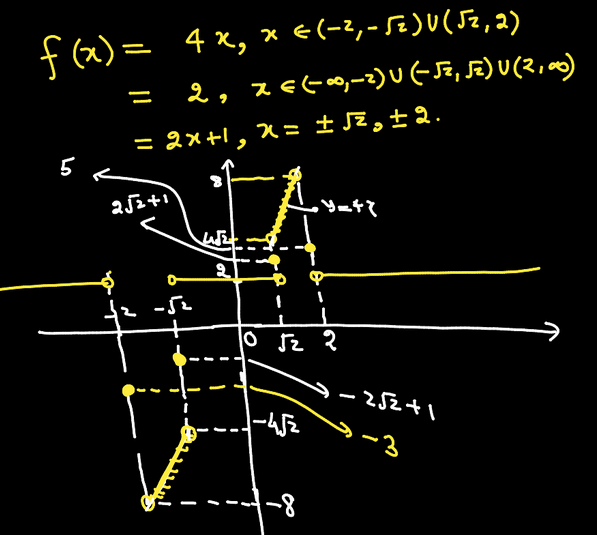 f(x) = 4x, x ∈ (-2, -√2) ∪ (√2, 2)
= 2, x ∈ (-∞, -2) ∪ (-√2, √2) ∪ (2, ∞)
= 2x+1, x = ±√2, ±2.
5
8
2√2+1
y=4x
4√2
2
-2
-√2
0
√2
2
-2√2+1
-4√2
-3
-8